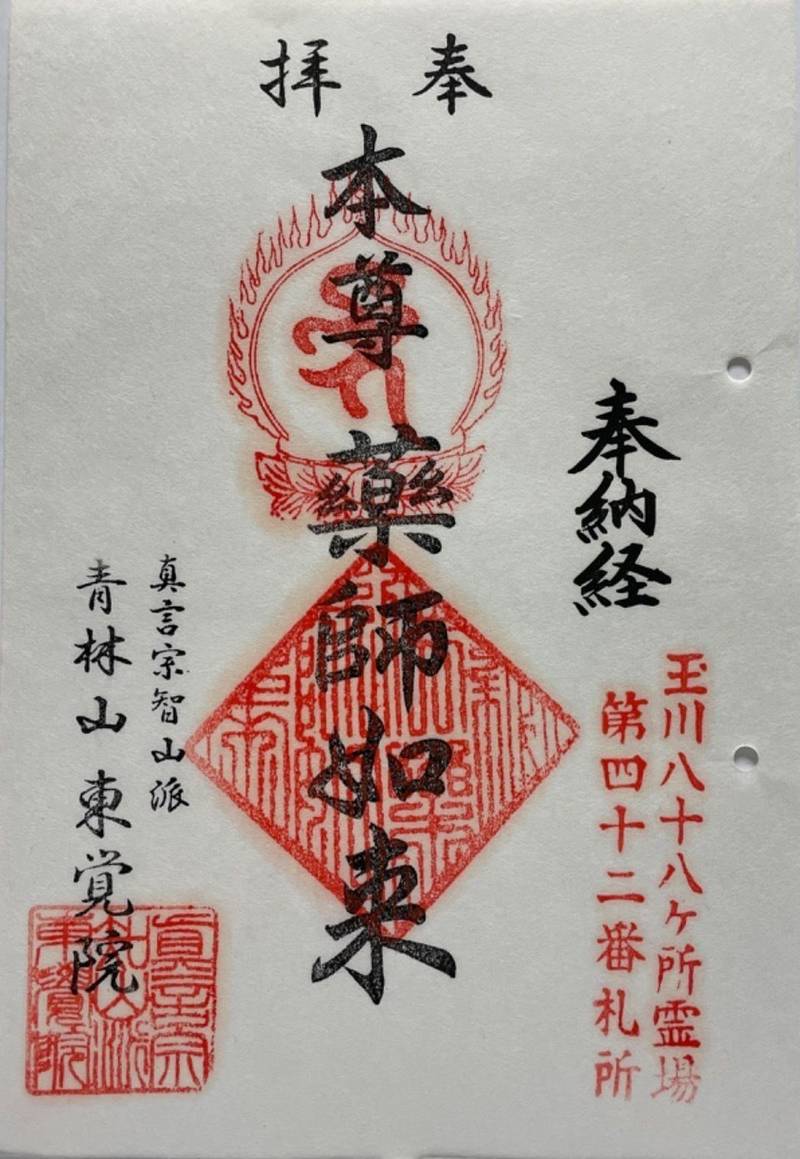 奉拝
奉納経
玉川八十八ヶ所霊場
第四十二番札所
本尊藥師如来
真言宗智山派
青林山東覚院